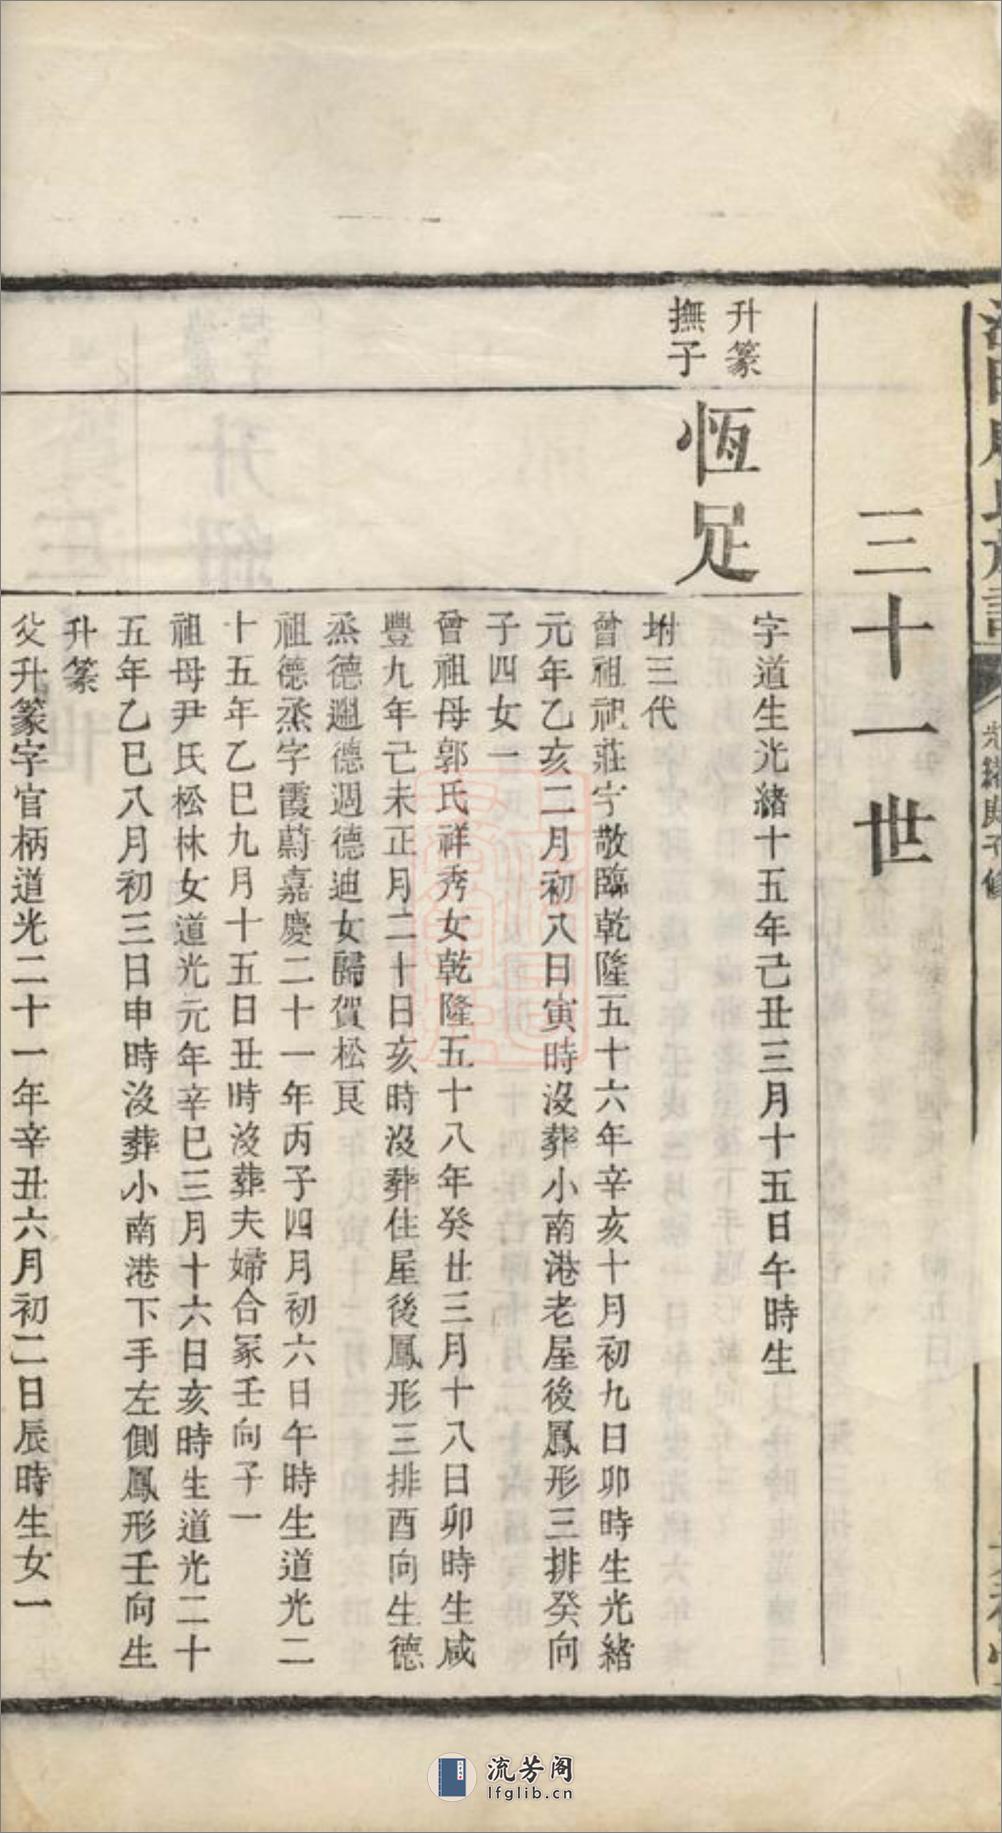 三十一世
升篆
撫子
恆足
字道生光緒十五年己丑三月十五日午時生
坿三代
曾祖祖莊字敬臨乾隆五十六年辛亥十月初九日卯時生光緒
元年乙亥二月初八日寅時沒葬小南港老屋後鳳形三排癸向
子四女一
曾祖母郭氏祥秀女乾隆五十八年癸丑三月十八日卯時生咸
豐九年己未正月二十日亥時沒葬住屋後鳳形三排酉向生德
烝德週德迪女歸賀松艮
祖德烝字霞蔚嘉慶二十一年丙子四月初六日午時生道光二
十五年乙巳九月十五日丑時沒葬夫婦合冢壬向子一
祖母尹氏松林女道光元年辛巳三月十六日亥時生道光二十
五年乙巳八月初三日申時沒葬小南港下手左側鳳形壬向生
升篆
父升篆字官柄道光二十一年辛丑六月初二日辰時生女一
流芳阁
lfglib.cn